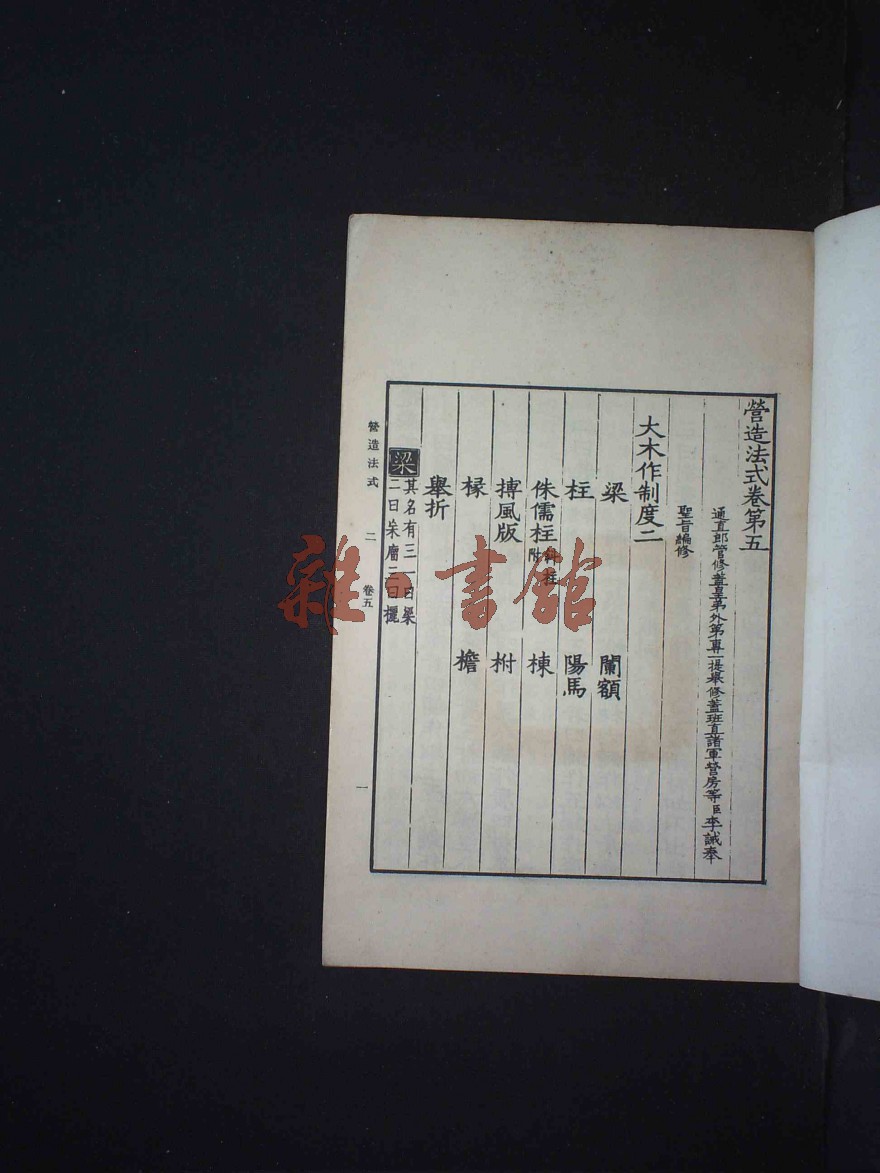 營造法式卷第五
通直郎管修蓋皇弟外第專一提舉修蓋班直諸軍營房等臣李誡奉
聖旨編修
大木作制度二
梁 闌額
柱 陽馬
侏儒柱斜柱附 棟
搏風版 柎
椽 檐
舉折
梁其名有三一曰梁
二曰杗廇三曰欐
營造法式 二 卷五 一
雜·書館